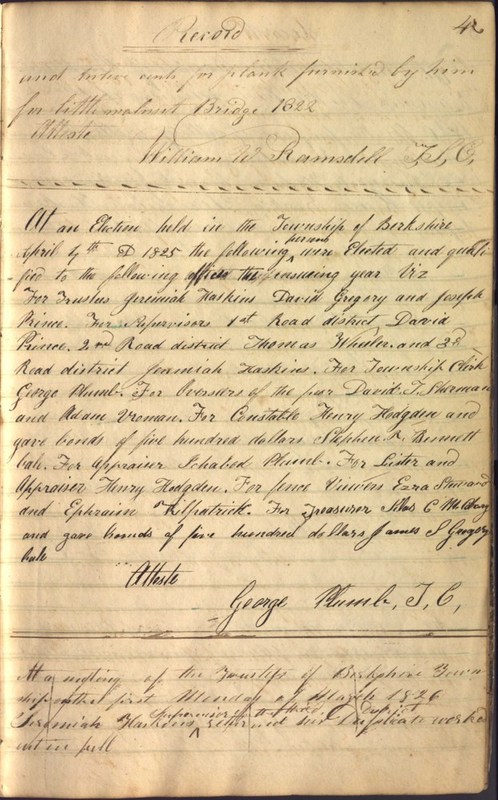 Record
42
and twelve cents for plank furnished by him
for little walnut Bridge 1822
Atteste
William W Ramsdell T, C,
At an Election held in the Township of Berkshire
April 4th D 1825 the following persons were Elected and quali
fied to the following offices the ensueing year Viz
For Trustus Jeremiah Haskins David Gregory and Joseph
Prince. For Supervisors 1st Road district David
Prince. 2nd Road district Thomas Wheeler. and 3d
Road district Jeremiah Haskins. For Township Clerk
George Plumb. For Overseers of the poor David. T. Sherman
and Adam Vroman. For Constable Henry Hodgden and
gave bonds of five hundred dollars Stephen R, Bennett
bale. For Appraiser Ichabod Plumb. For Lister and
Appraiser Henry Hodgden. For fence Viewers Ezra
and Ephraim Kilpatrick. For Treasurer Silas C
and gave bonds of five hundred dollars James S Gregory
bale
Atteste
George Plumb, T, C,
At a meeting of the of Berkshire Town
ship on the first Monday of March 1826
Jeremiah Haskins Supervisor of the third District returned his Duplicate worked
out in full